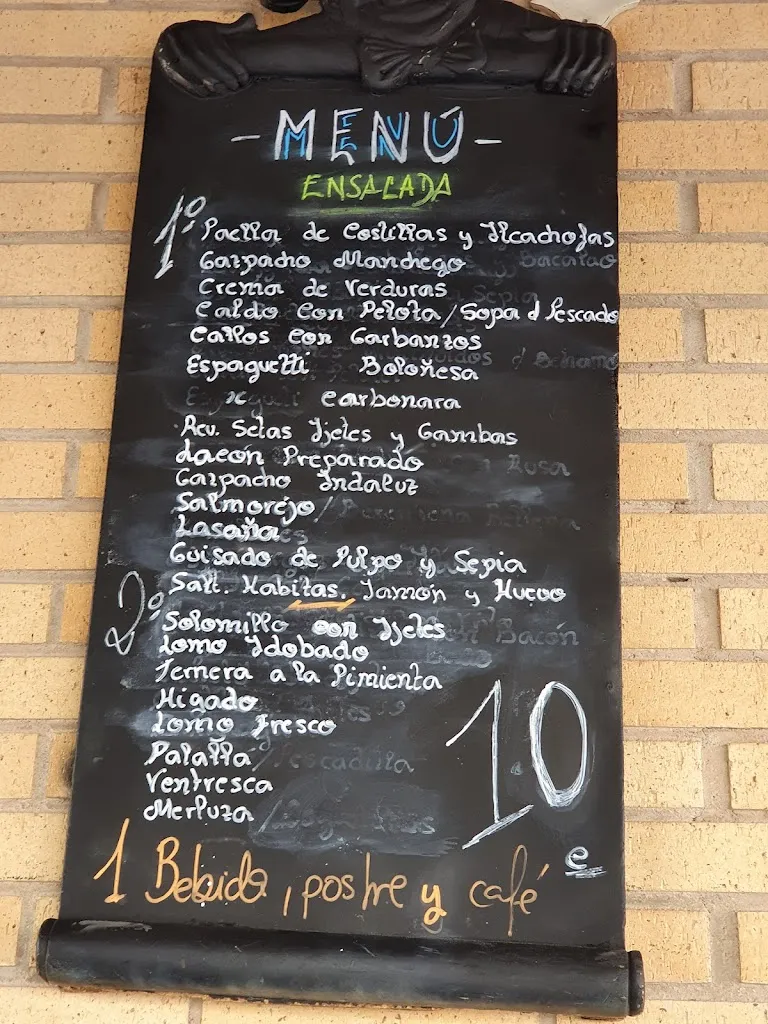 - MENÚ -
ENSALADA
1º Paella de Costillas y Alcachofas
Gazpacho Manchego
Crema de Verduras
Caldo con Pelota/Sopa d Pescado
Callos con Garbanzos
Espaguetti Boloñesa
" Carbonara
Rev. Setas Ajetes y Gambas
Lacón Preparado
Gazpacho Andaluz
Salmorejo/
Lasaña
Guisado de Pulpo y Sepia
Salt. Habitas, Jamón y Huevo
2º Solomillo con Ajetes
Lomo Adobado
Ternera a la Pimienta
Higado
Lomo Fresco
Palaílla
Ventresca
Merluza
10 e
1 Bebida, postre y café